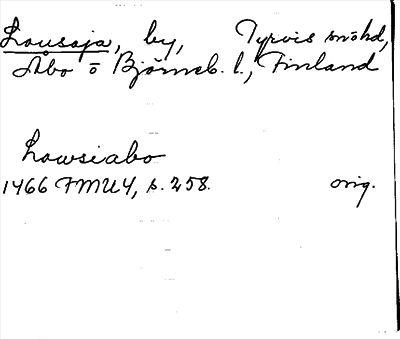 Lousaja, by, Tyrvis snöhd,
Åbo o Björneb. l., Finland
Lowsiabo
1466 FMU4, s. 258. orig.